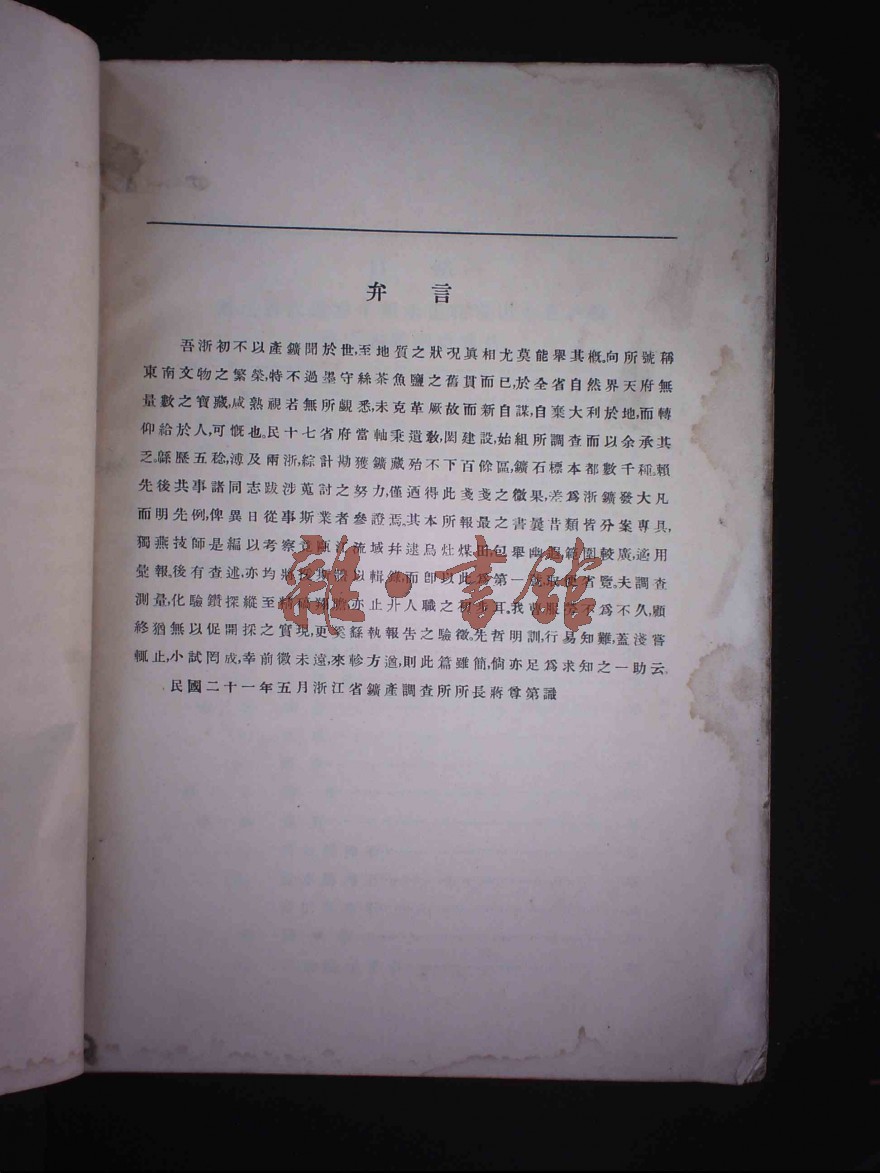 弁言
吾浙初不以產鑛聞於世,至地質之狀況眞相尤莫能舉其槪。向所號稱
東南文物之繁榮,特不過墨守絲茶魚鹽之舊貫而已,於全省自然界天府無
量數之寶藏,咸熟視若無所覩悉,未克革厥故而新自謀,自棄大利於地,而轉
仰給於人,可慨也。民十七省府當軸秉遺敎,閎建設,始組所調查而以余承其
乏。繇歷五稔,溥及兩浙,綜計勘獲鑛藏殆不下百餘區,鑛石標本都數千種。賴
先後共事諸同志跋涉蒐討之努力,僅迺得此戔戔之微果,差爲浙鑛發大凡
而明先例,俾異日從事斯業者參證焉。其本所報最之書曩昔類皆分案專具,
獨燕技師是編以考察 江流域幷逮烏灶煤田,包舉幽 範圍較廣,遂用
彙報。後有查述,亦均 以輯 而卽以此爲第一 取便省覽。夫調查
測量,化驗鑽探,縱至精 亦止丱人職之初步耳。我 不爲不久,顧
終猶無以促開採之實現,更奚繇執報告之驗徵。先哲明訓,行易知難,蓋淺嘗
輒止,小試罔成,幸前徽未遠,來軫方遒,則此篇雖簡,倘亦足爲求知之一助云。
民國二十一年五月浙江省鑛產調查所所長蔣尊第識
雜·書館